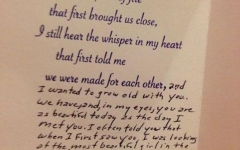 that first brought us close,
I still hear the whisper in my heart
that first told me
we were made for each other, and
I wanted to grow old with you.
We have, and, in my eyes, you are
as beautiful today as the day I
met you. I often told you that
when I first saw you, I was looking
at the most beautiful girl in the